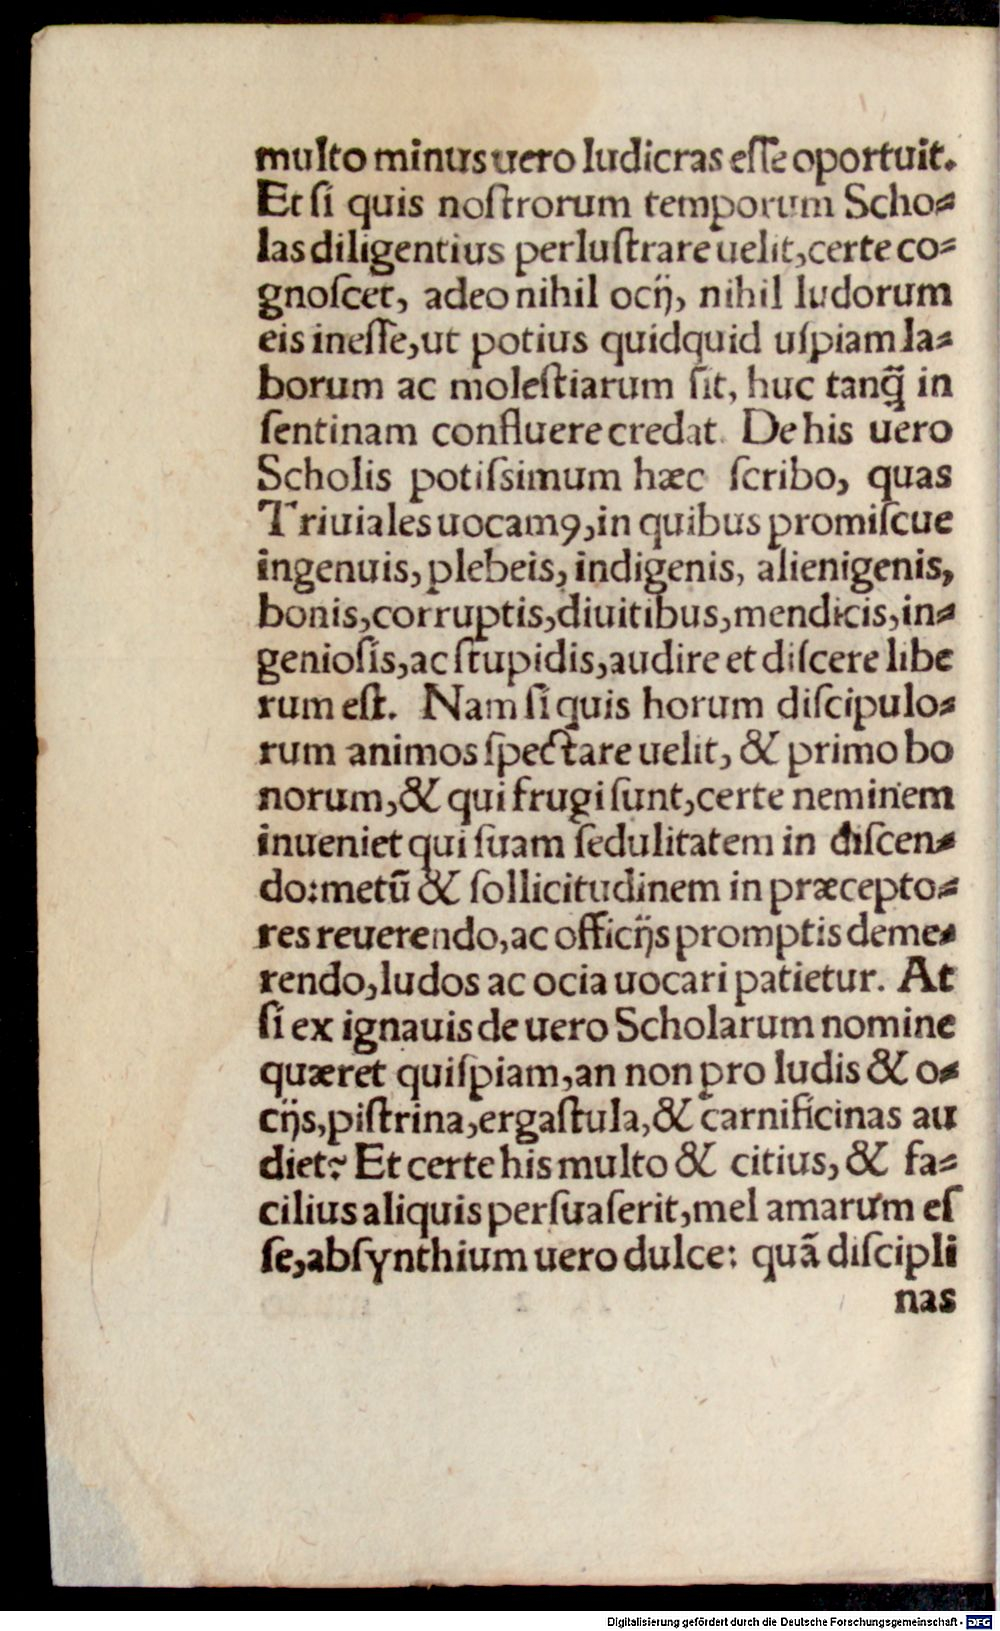 multo minus uero ludicras eſſe oportuit.
Et ſi quis noſtrorum temporum Scho-
las diligentius perluſtrare uelit, certe co-
gnoſcet, adeo nihil ocij, nihil ludorum
eis ineſſe, ut potius quidquid uſpiam la-
borum ac moleſtiarum ſit, huc tanq̃ in
ſentinam confluere credat. De his uero
Scholis potiſsimum hæc ſcribo, quas
Triuiales uocamꝰ, in quibus promiſcue
ingenuis, plebeis, indigenis, alienigenis,
bonis, corruptis, diuitibus, mendicis, in-
genioſis, ac ſtupidis, audire et diſcere libe
rum eſt. Nam ſi quis horum diſcipulo-
rum animos ſpectare uelit, & primo bo
norum, & qui frugi ſunt, certe neminem
inueniet qui ſuam ſedulitatem in diſcen-
do: metũ & ſollicitudinem in præcepto-
res reuerendo, ac officijs promptis deme-
rendo, ludos ac ocia uocari patietur. At
ſi ex ignauis de uero Scholarum nomine
quæret quiſpiam, an non pro ludis & o-
cijs, piſtrina, ergaſtula, & carnificinas au
diet? Et certe his multo & citius, & fa-
cilius aliquis perſuaſerit, mel amarum eſ
ſe, abſynthium uero dulce: quã diſcipli
nas
Digitalisierung gefördert durch die Deutsche Forschungsgemeinschaft - DFG